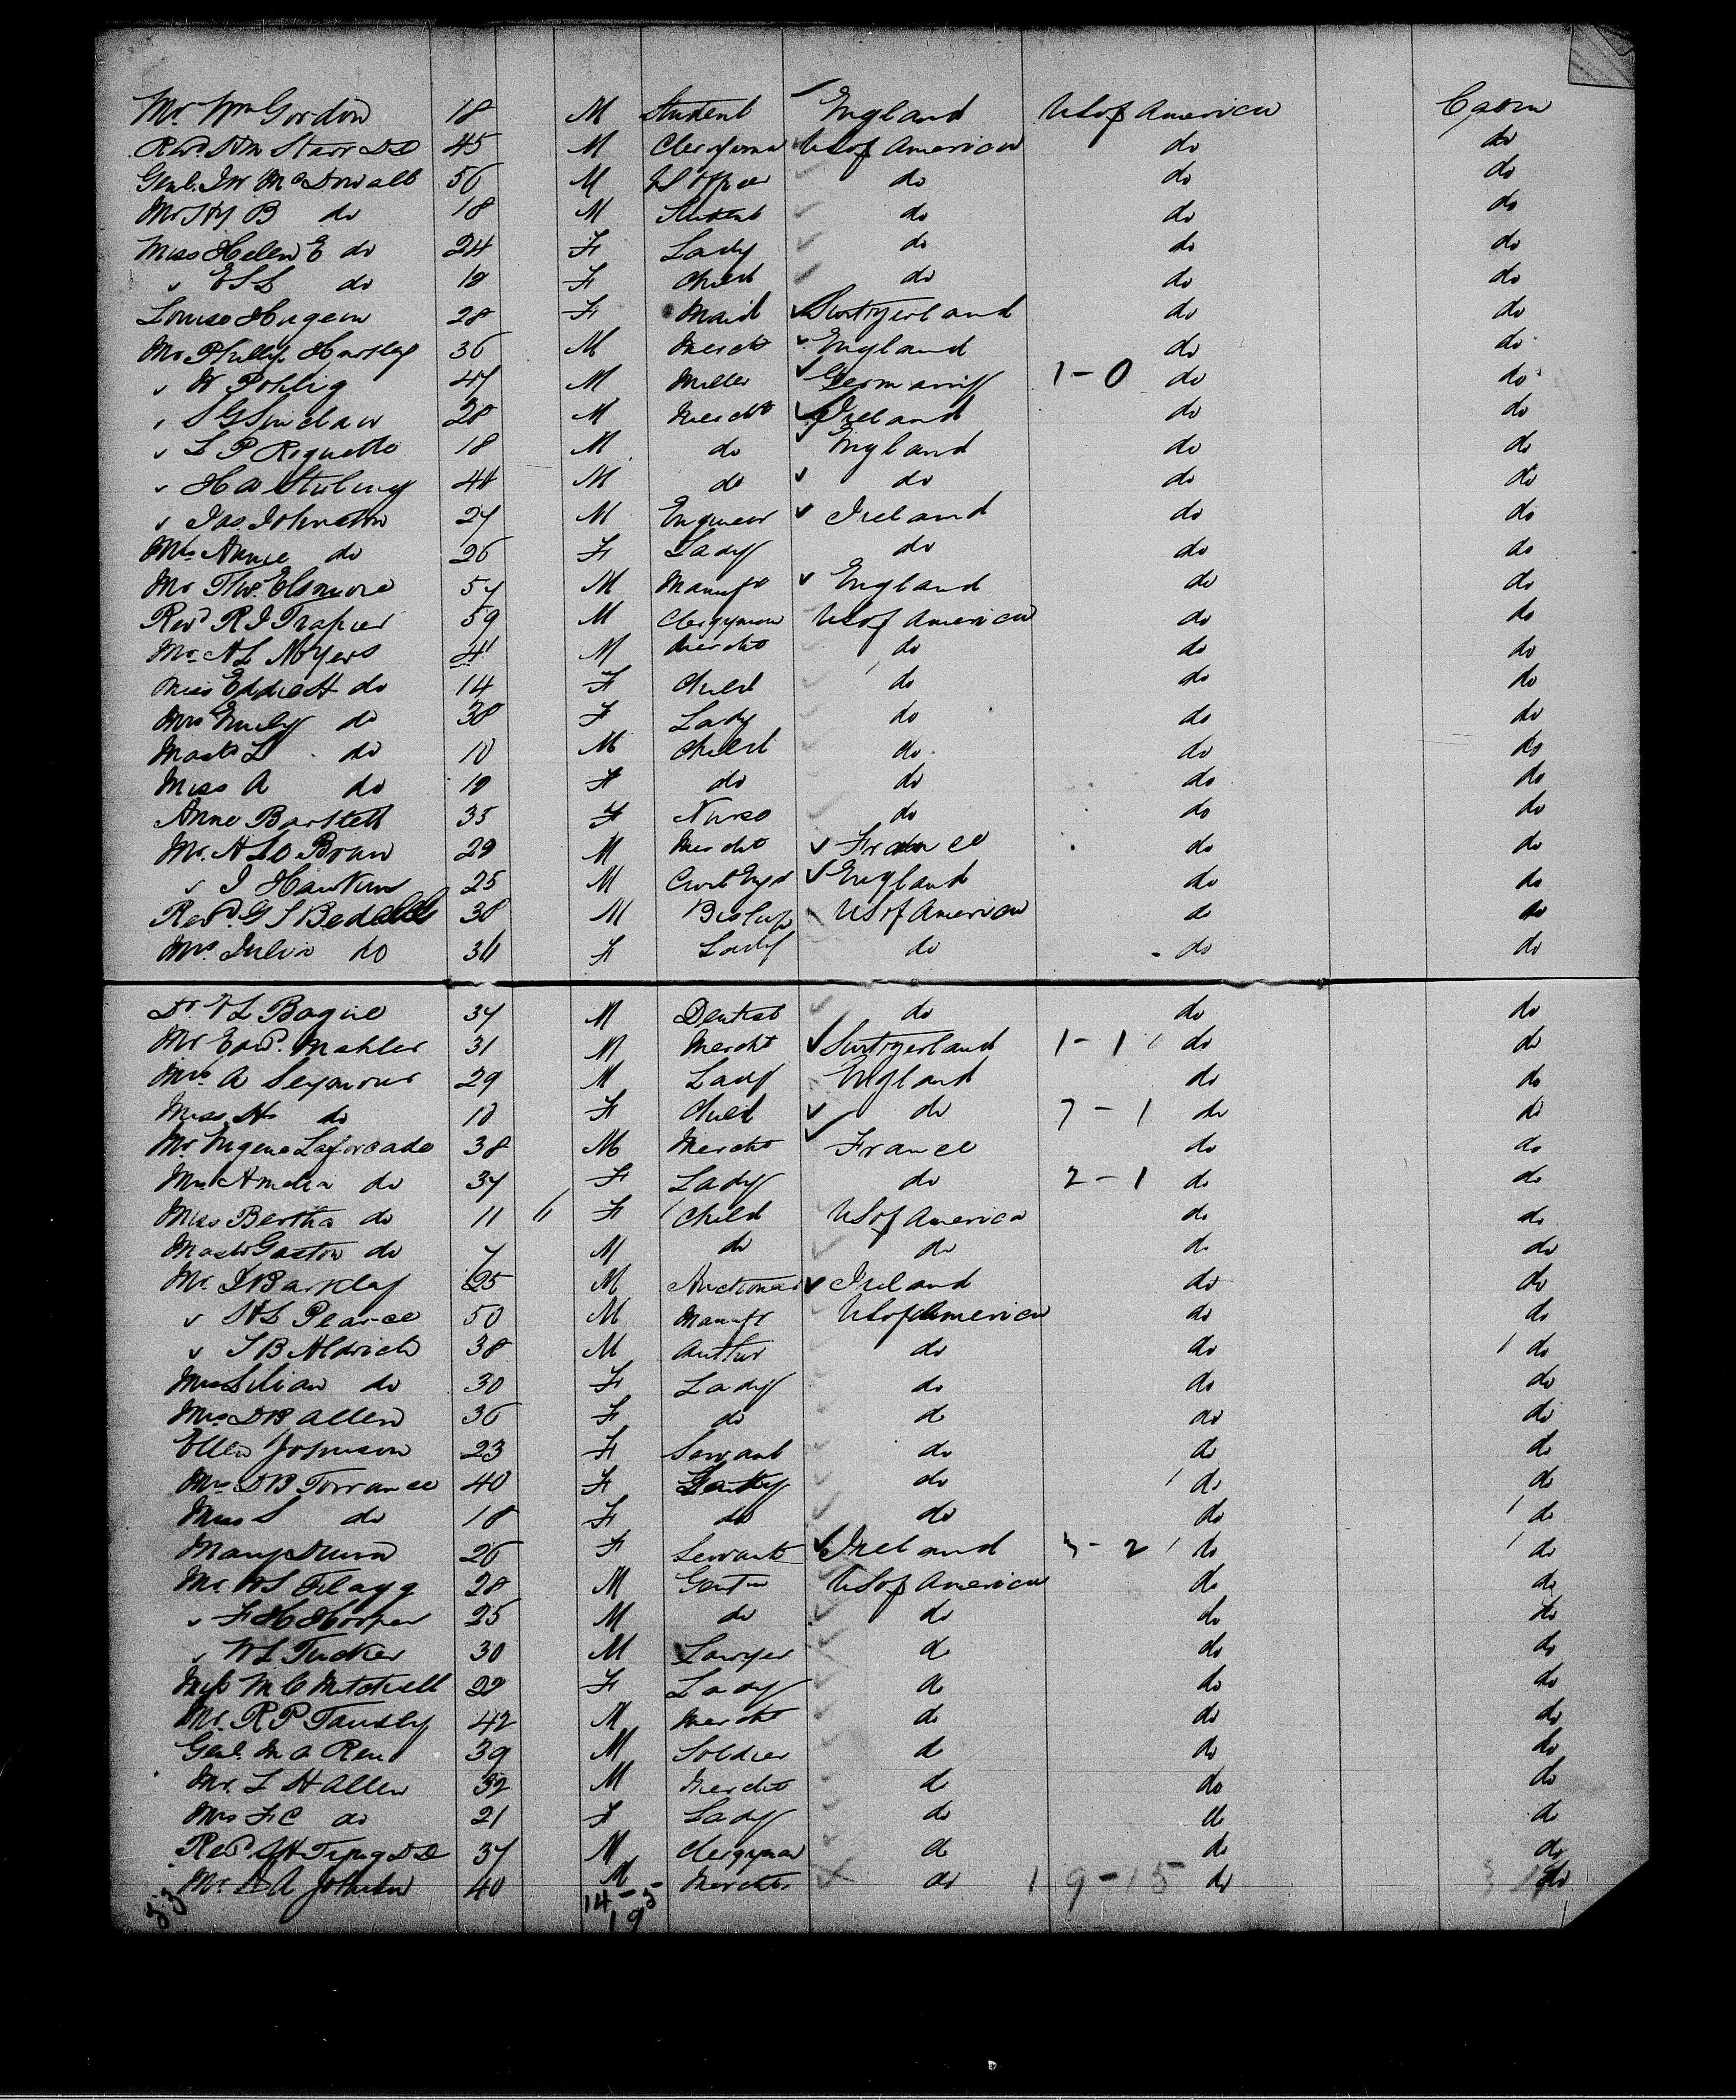 Mr. Wm Gordon 18 M Student England US of America Cabin
Revd. Wm Starr DD 45 M Clergyman US of America do do
Genl. Irv McDowall 56 M US Officer do do do
Mr Hy B do 18 M Student do do do
Miss Helen E do 24 F Lady do do do
" ESL do 10 F Child do do do
Louise Hugein 28 F Maid Switzerland do do
Mr Phillip Hartley 36 M Mercht England do do
" W Pohlig 47 M Miller Germany 1-0 do do
" S G Sinclair 28 M Mercht Ireland do do
" L P Riquetto 18 M do England do do
" H A Stirling 44 M do do do do
" Jas. Johnston 27 M Engineer Ireland do do
Mrs Annie do 26 F Lady do do do
Mr Thos. Elsmore 57 M Manufr England do do
Revd R J Trapier 59 M Clergyman US of America do do
Mr. A L Moyers 41 M Mercht do do do
Miss Eddie H do 14 F Child do do do
Mrs Emily do 38 F Lady do do do
Mastr L do 10 M Child do do do
Miss A do 10 F do do do do
Anne Bartlett 35 F Nurse do do do
Mr. A Le Bran 29 M Mercht France do do
" J Hawkins 25 M Civil Engr England do do
Revd. G T Bedell 38 M Bishop US of America do do
Mrs. Julia do 36 F Lady do do do
Dr V L Bogue 37 M Dentist do do do
Mr Edwd. Mahler 31 M Mercht Switzerland 1-1 do do
Mrs. A Seymour 29 M Lady England do do
Miss H do 10 F Child do 7-1 do do
Mr Eugene Laforcade 38 M Mercht France do do
Mrs Amelia do 37 F Lady do 2-1 do do
Miss Bertha do 11 F Child US of America do do
Mastr Gaston do 7 M do do do do
Mr. J Barklay 25 M Auctioneer Ireland do do
" H L Pearce 50 M Manufr US of America do do
" T B Aldrich 38 M Author do do do
Mrs Lilian do 30 F Lady do do do
Mrs D B Allen 36 F do do do do
Ellen Johnson 23 F Servant do do do
Mrs D B Torrance 40 F Lady do do do
Miss S do 18 F do do do do
Mary Dunn 26 F Servant Ireland 3-2 do do
Mr. W S Flagg 28 M Gentn US of America do do
" F H Hooper 25 M do do do do
" W L Tucker 30 M Lawyer do do do
Miss M C Mitchell 22 F Lady do do do
Mr. R P Tansley 42 M Mercht do do do
Genl. M A Reno 39 M Soldier do do do
Mr. L H Allen 32 M Mercht do do do
Mrs F C do 21 F Lady do do do
Revd S H Tyng DD 37 M Clergyman do do do
Mr. D A Johnson 40 M Mercht do 19-15 do do
53 14-5
19